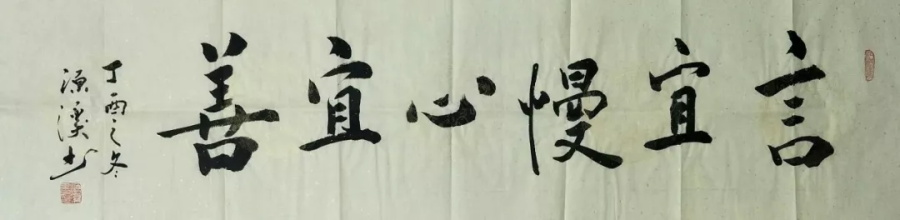 言宜慢心宜善
丁酉之冬
溪书